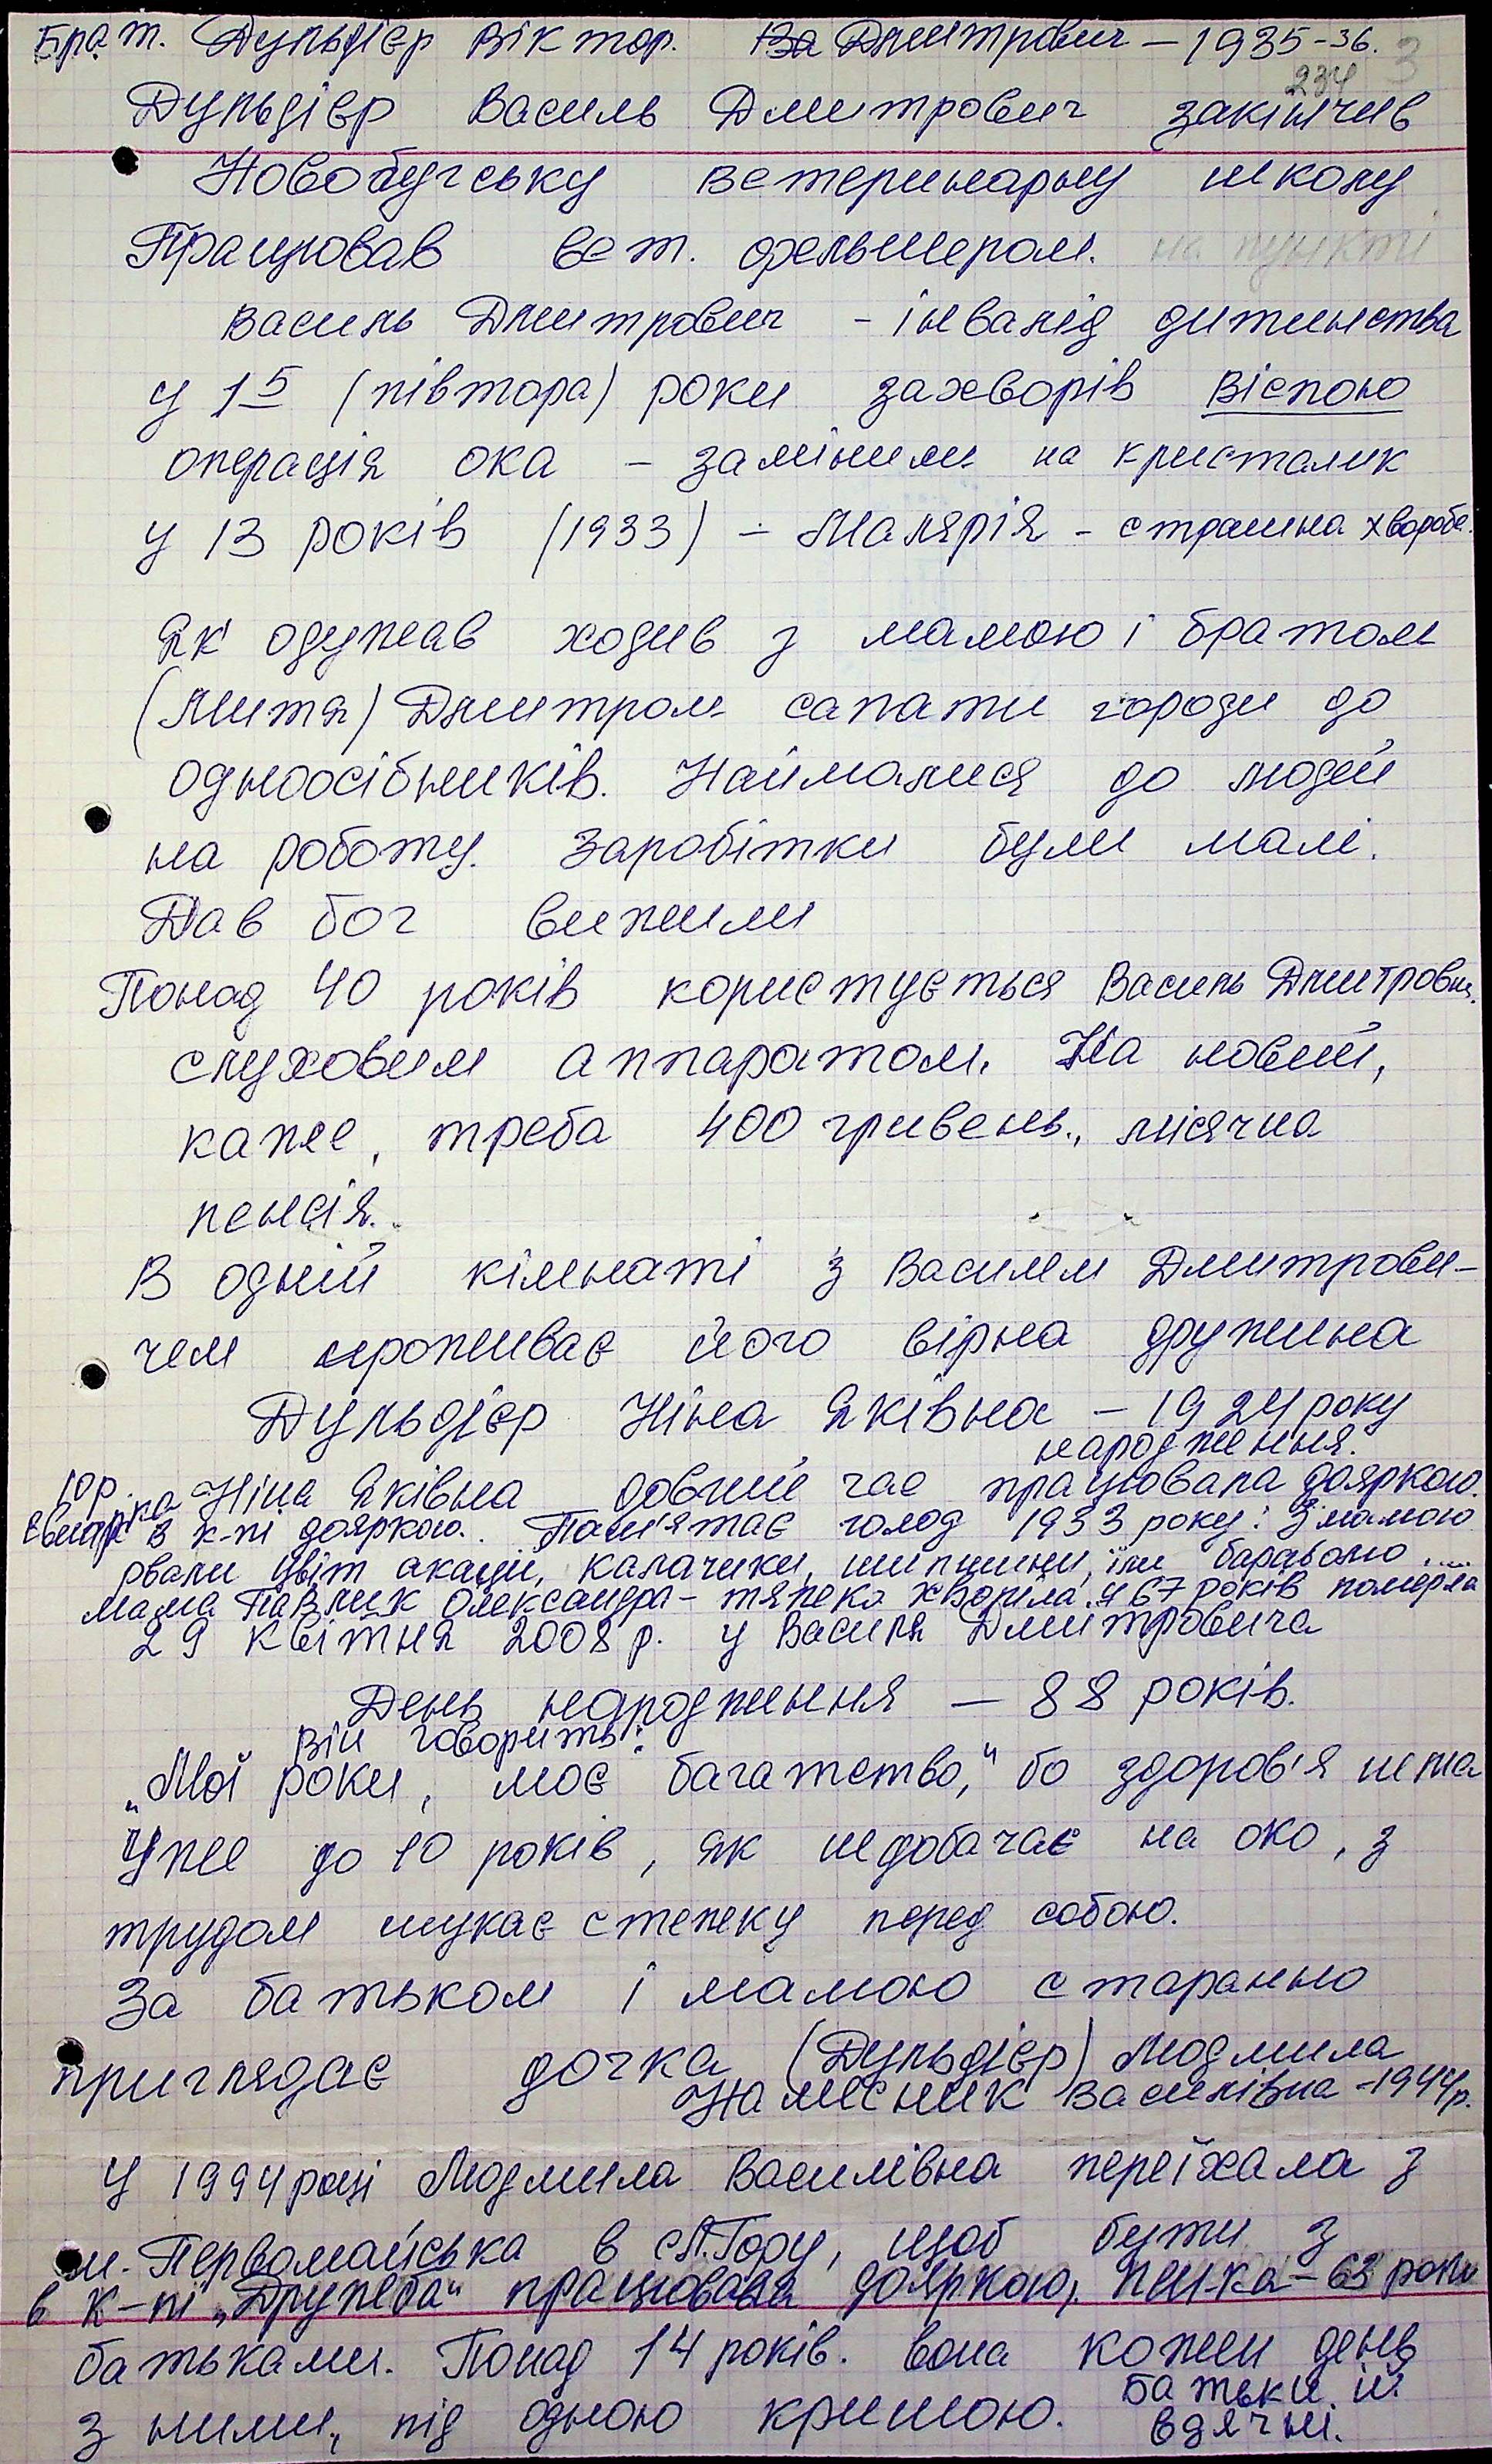 Брат. Дульдієр Віктор. Дмитрович – 1935-36.
234 3
Дульдієр Василь Дмитрович закінчив
Новобугську ветеринарну школу
Працював вет. фельшером. на пункті
Василь Дмитрович – інвалід дитинства
у 1 5 (півтора) роки захворів віспою
операція ока – замінили на кристалик
у 13 років (1933) – Малярія – страшна хвороба.
Як одужав ходив з мамою і братом
(Митя) Дмитром сапати городи до
одноосібників. Наймалися до людей
на роботу. Заробітки були малі.
Дав бог вижили
Понад 40 років користується Василь Дмитрович.
слуховим аппаратом. На новий,
каже, треба 400 гривень., місячна
пенсія.
В одній кімнаті з Василем Дмитрови-
чем проживає його вірна дружина
Дульдієр Ніна Яківна – 1924 року
народження.
10 р. Ніна Яківна довгий час працювала дояркою.
Свинарка в к-пі дояркою. Пам'ятає голод 1933 року: З мамою
рвали цвіт акації, калачики, шипшини, їли бараболю ....
мама Павлик Олександра – тяжко хворіла. у 67 років померла
29 квітня 2008 р. у Василя Дмитровича
День народження – 88 років.
Він говорить:
„Мої роки, моє багатство," бо здоров'я нема
Уже до 10 років, як недобачає на око, з
трудом шукає стежку перед собою.
За батьком і мамою старанно
приглядає дочка (Дульдієр) Людмила
Намесник Василівна – 1944р.
У 1994 році Людмила Василівна переїхала з
м. Первомайська в с Л.Гору, щоб бути з
в к-пі „Дружба" працювала дояркою, пен-ка – 63 роки
батьками. Понад 14 років. вона кожен день
з ними, під одною кришою. батьки їй
вдячні.